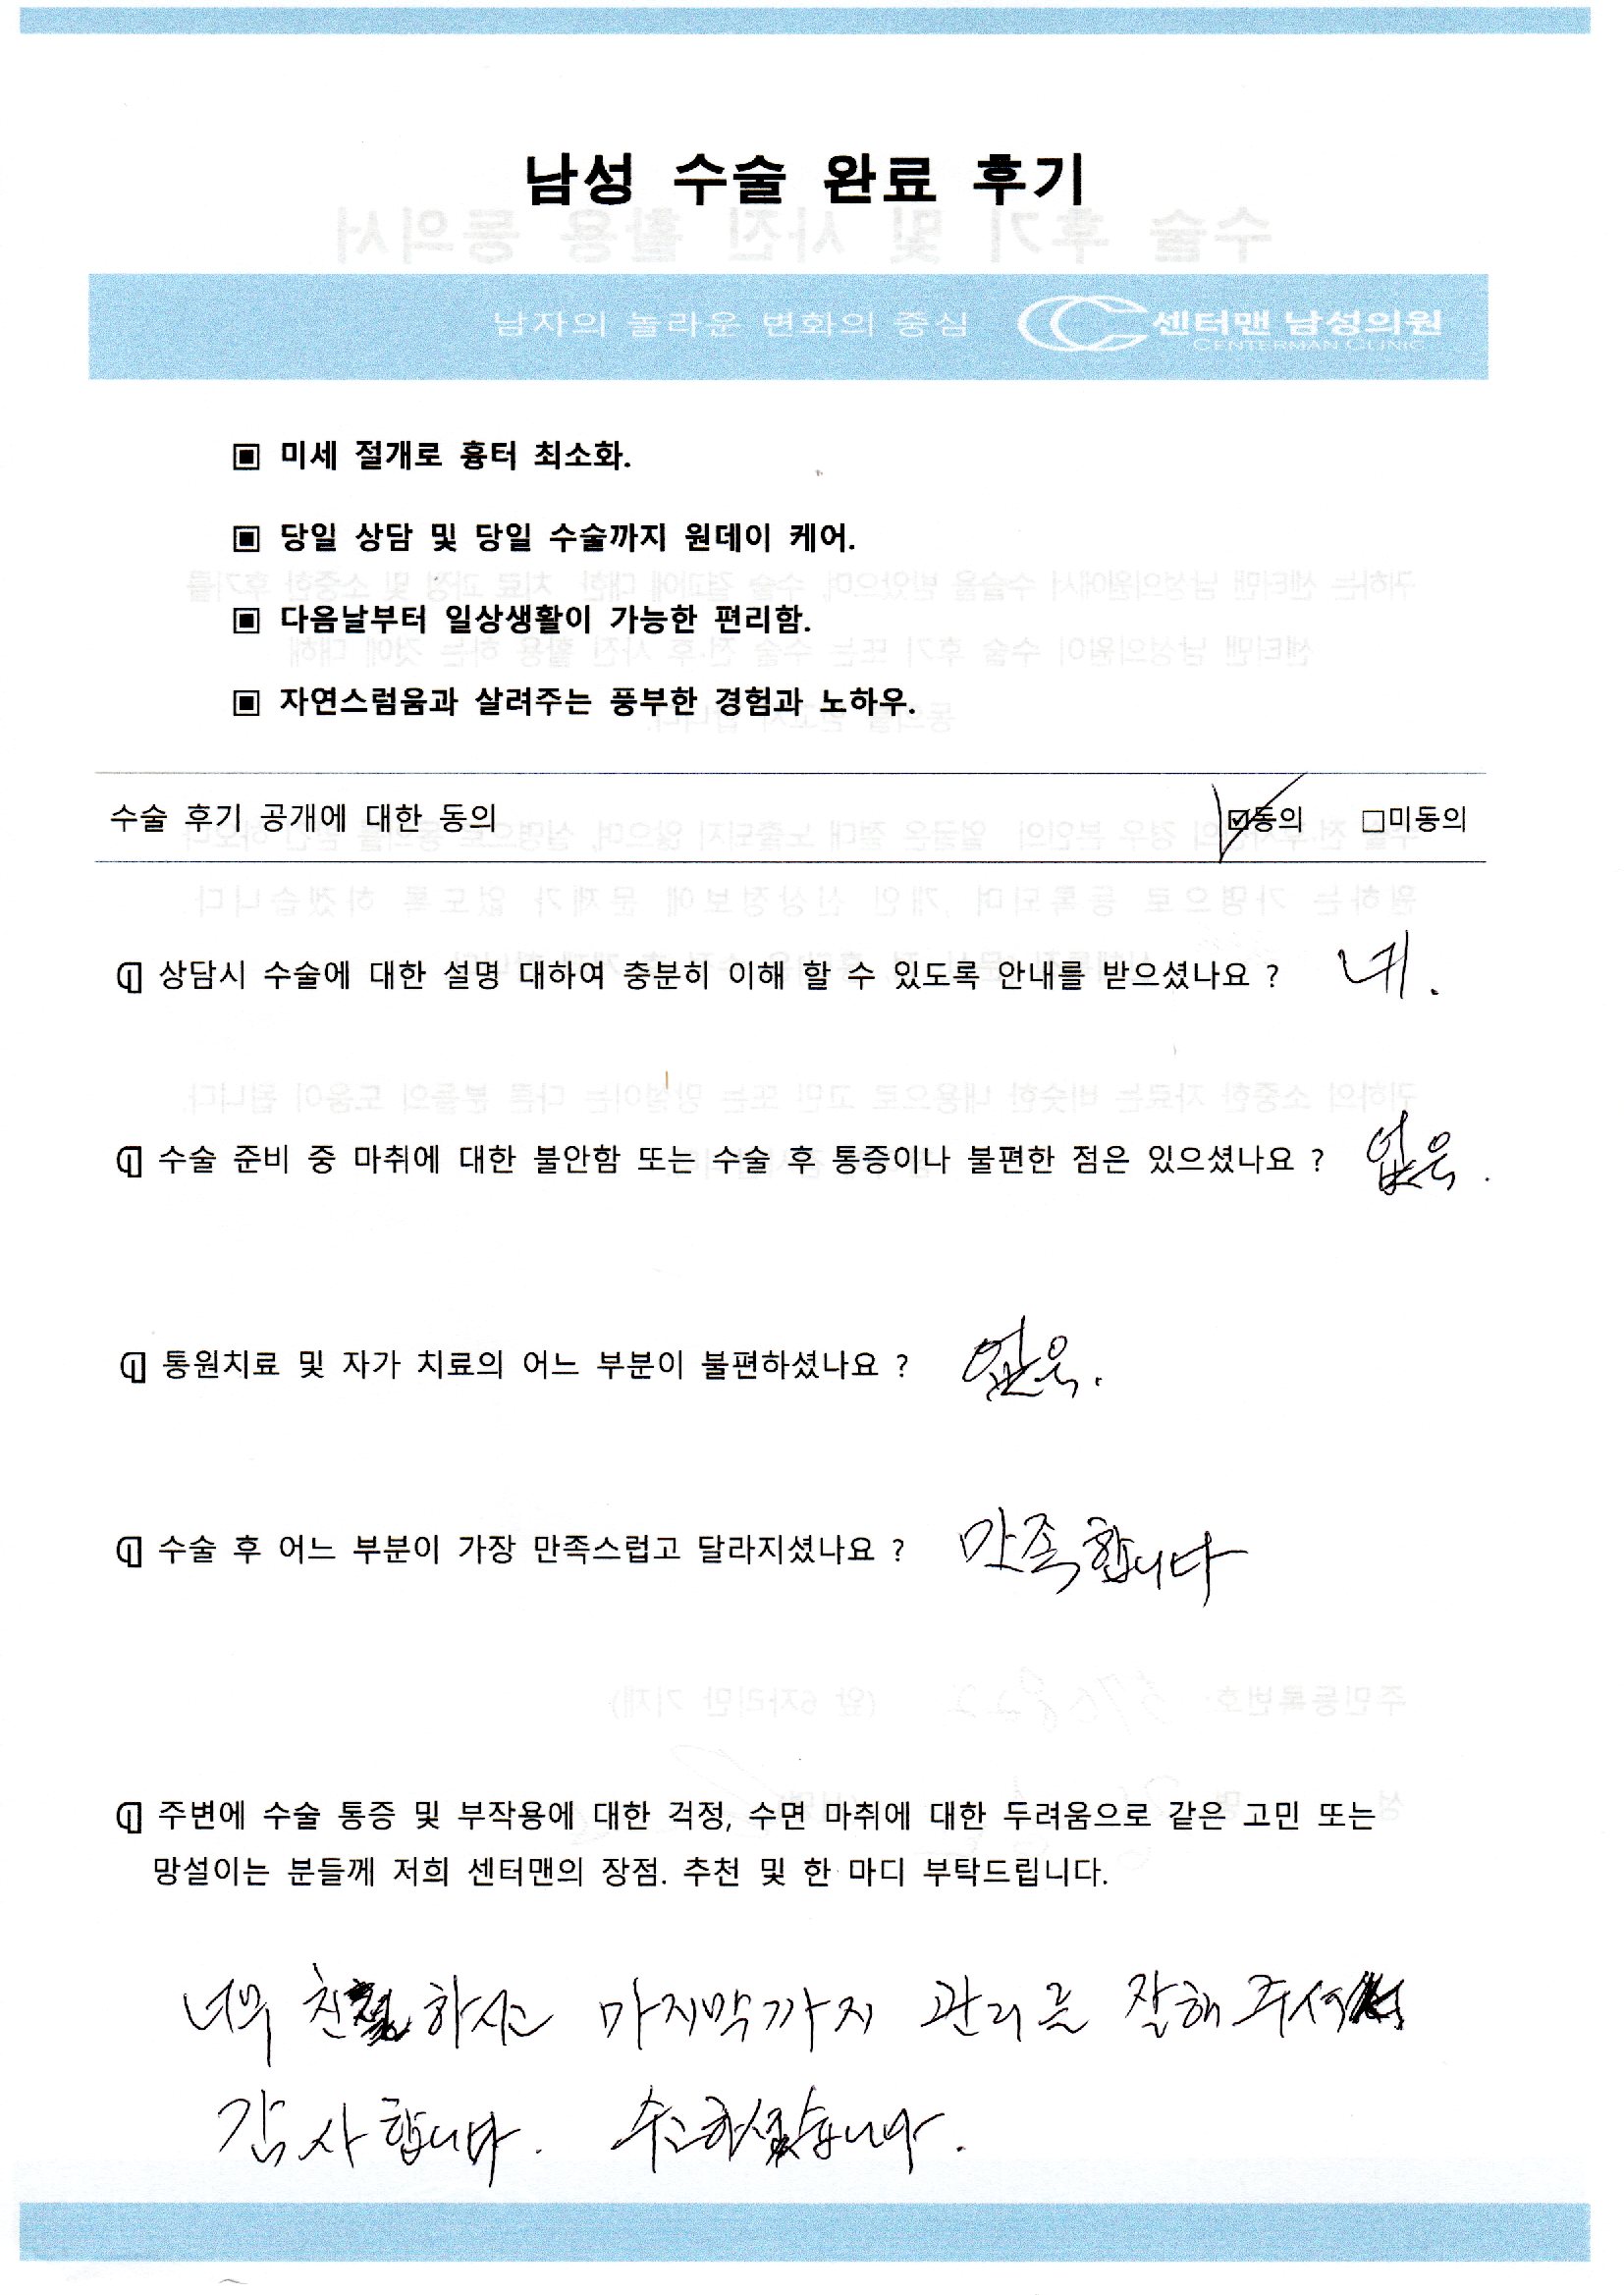 남성 수술 완료 후기
남자의 놀라운 변화의 중심 센터맨 남성의원
CENTERMAN CLINIC
▣ 미세 절개로 흉터 최소화.
▣ 당일 상담 및 당일 수술까지 원데이 케어.
▣ 다음날부터 일상생활이 가능한 편리함.
▣ 자연스럼움과 살려주는 풍부한 경험과 노하우.
수술 후기 공개에 대한 동의 ☑동의 □미동의
상담시 수술에 대한 설명 대하여 충분히 이해 할 수 있도록 안내를 받으셨나요 ? 네.
수술 준비 중 마취에 대한 불안함 또는 수술 후 통증이나 불편한 점은 있으셨나요 ? 없음.
통원치료 및 자가 치료의 어느 부분이 불편하셨나요 ? 없음.
수술 후 어느 부분이 가장 만족스럽고 달라지셨나요 ? 만족합니다
주변에 수술 통증 및 부작용에 대한 걱정, 수면 마취에 대한 두려움으로 같은 고민 또는
망설이는 분들께 저희 센터맨의 장점. 추천 및 한 마디 부탁드립니다.
너무 친절하시고 마지막까지 관리를 잘해 주셔서
감사합니다. 수고하셨습니다.